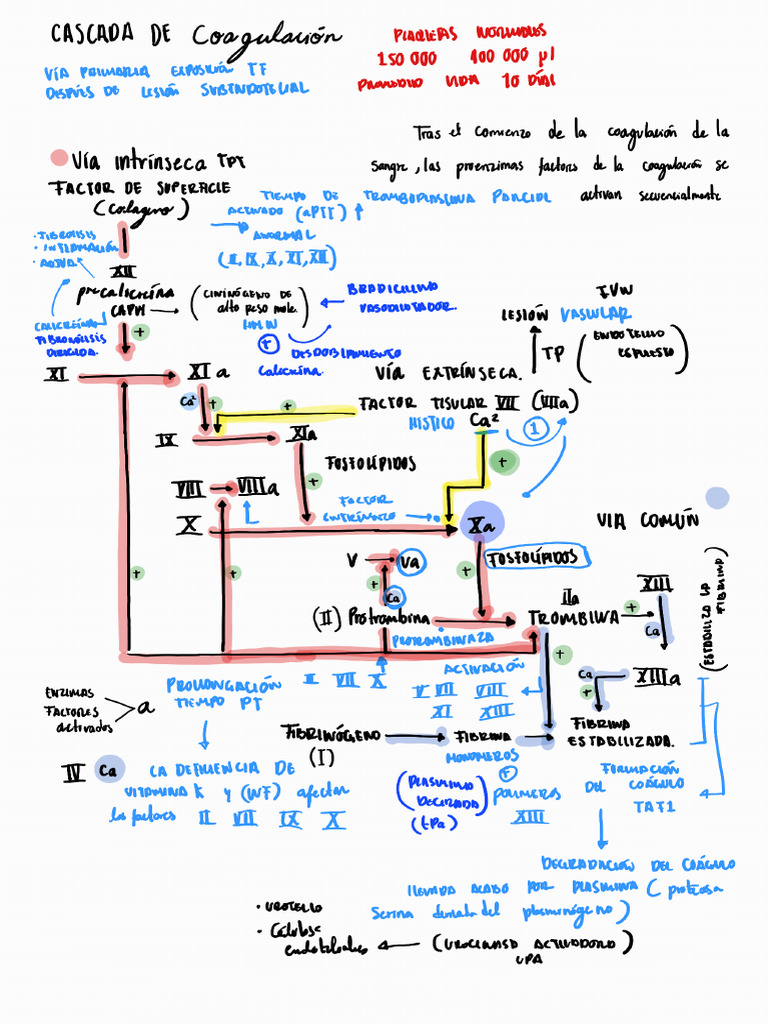 CASCADA DE Coagulación
PLAQUETAS NORMALES
150 000 400 000 µl
PROMEDIO VIDA 10 DÍAS
VÍA PRIMARIA EXPOSICIÓN TF
DESPUÉS DE LESIÓN SUBENDOTELIAL
Tras el comienzo de la coagulación de la
sangre, las proenzimas factores de la coagulación se
activan secuencialmente
Vía intrínseca TPT
FACTOR DE SUPERFICIE
(Colageno)
TIEMPO DE TROMBOPLASTINA PARCIAL
ACTIVADO (aPTT) ↑
ANORMAL
(II, IX, X, XI, XII)
· FIBROLISIS
· INFLAMACIÓN
XII
precalicreína
CAPM
(CININÓGENO DE
alto peso mole.
BRADICININO
VASODILATADOR.
CALICREÍNA
FIBRONÓLISIS
DIRIGIDA.
+
+
DESDOBLAMIENTO
Calicreína.
LESIÓN VASCULAR
TP
(ENDOTELIO
EXPUESTO)
XI
XI a
VÍA EXTRÍNSECA.
Ca²
+
+
FACTOR TISULAR VII (VIIa)
HISTICO
Ca²
1
IX
XIa
+
FOSFOLÍPIDOS
+
VIII
VIIIa
X
FACTOR
INTRÍNSECO
Xa
VIA COMÚN
FOSFOLÍPIDOS
V
Va
+
+
+
+
Ca
(II) Protrombina
IIa
TROMBINA
+
Ca
XIII
(ESTABILIZA LA
FIBRINA)
PROTROMBINAZA
+
PROLONGACIÓN
TIEMPO PT
II VII X
ACTIVACIÓN
V VII VIII
XI XIII
Ca
+
XIIIa
ENZIMAS
FACTORES
activados
a
FIBRINÓGENO
(I)
FIBRINA
MONOMEROS
FIBRINA
ESTABILIZADA.
IV Ca
LA DEFICIENCIA DE
VITAMINA K y (WF) afectan
los factores II VII IX X
(PLASMINO
(tPa)
+
POLIMEROS
XIII
FORMACIÓN
DEL COÁGULO
TAFI
DEGRADACIÓN DEL COÁGULO
llevada acabo por PLASMINA (proteasa
Serina derivada del plasminógeno)
· UROTELIO
· Células
endoteliales
(UROCINASA ACTIVADORO)
UPA